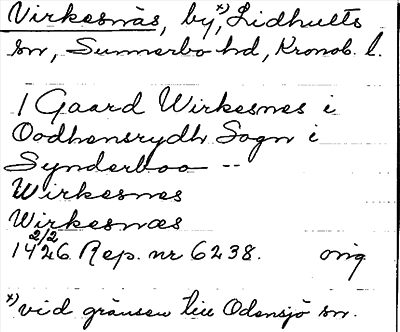 Virkesnäs, by,ˣ⁾ Lidhults
sn, Sunnerbo hd, Kronob. l.
I Gaard Wirkesnes i
Oodhensrydh Sogn i
Synderboo --
Wirkesnes
Wirkesnæs
2/2
1426. Rep. nr 6238. orig
ˣ⁾ vid gränsen till Odensjö sn.